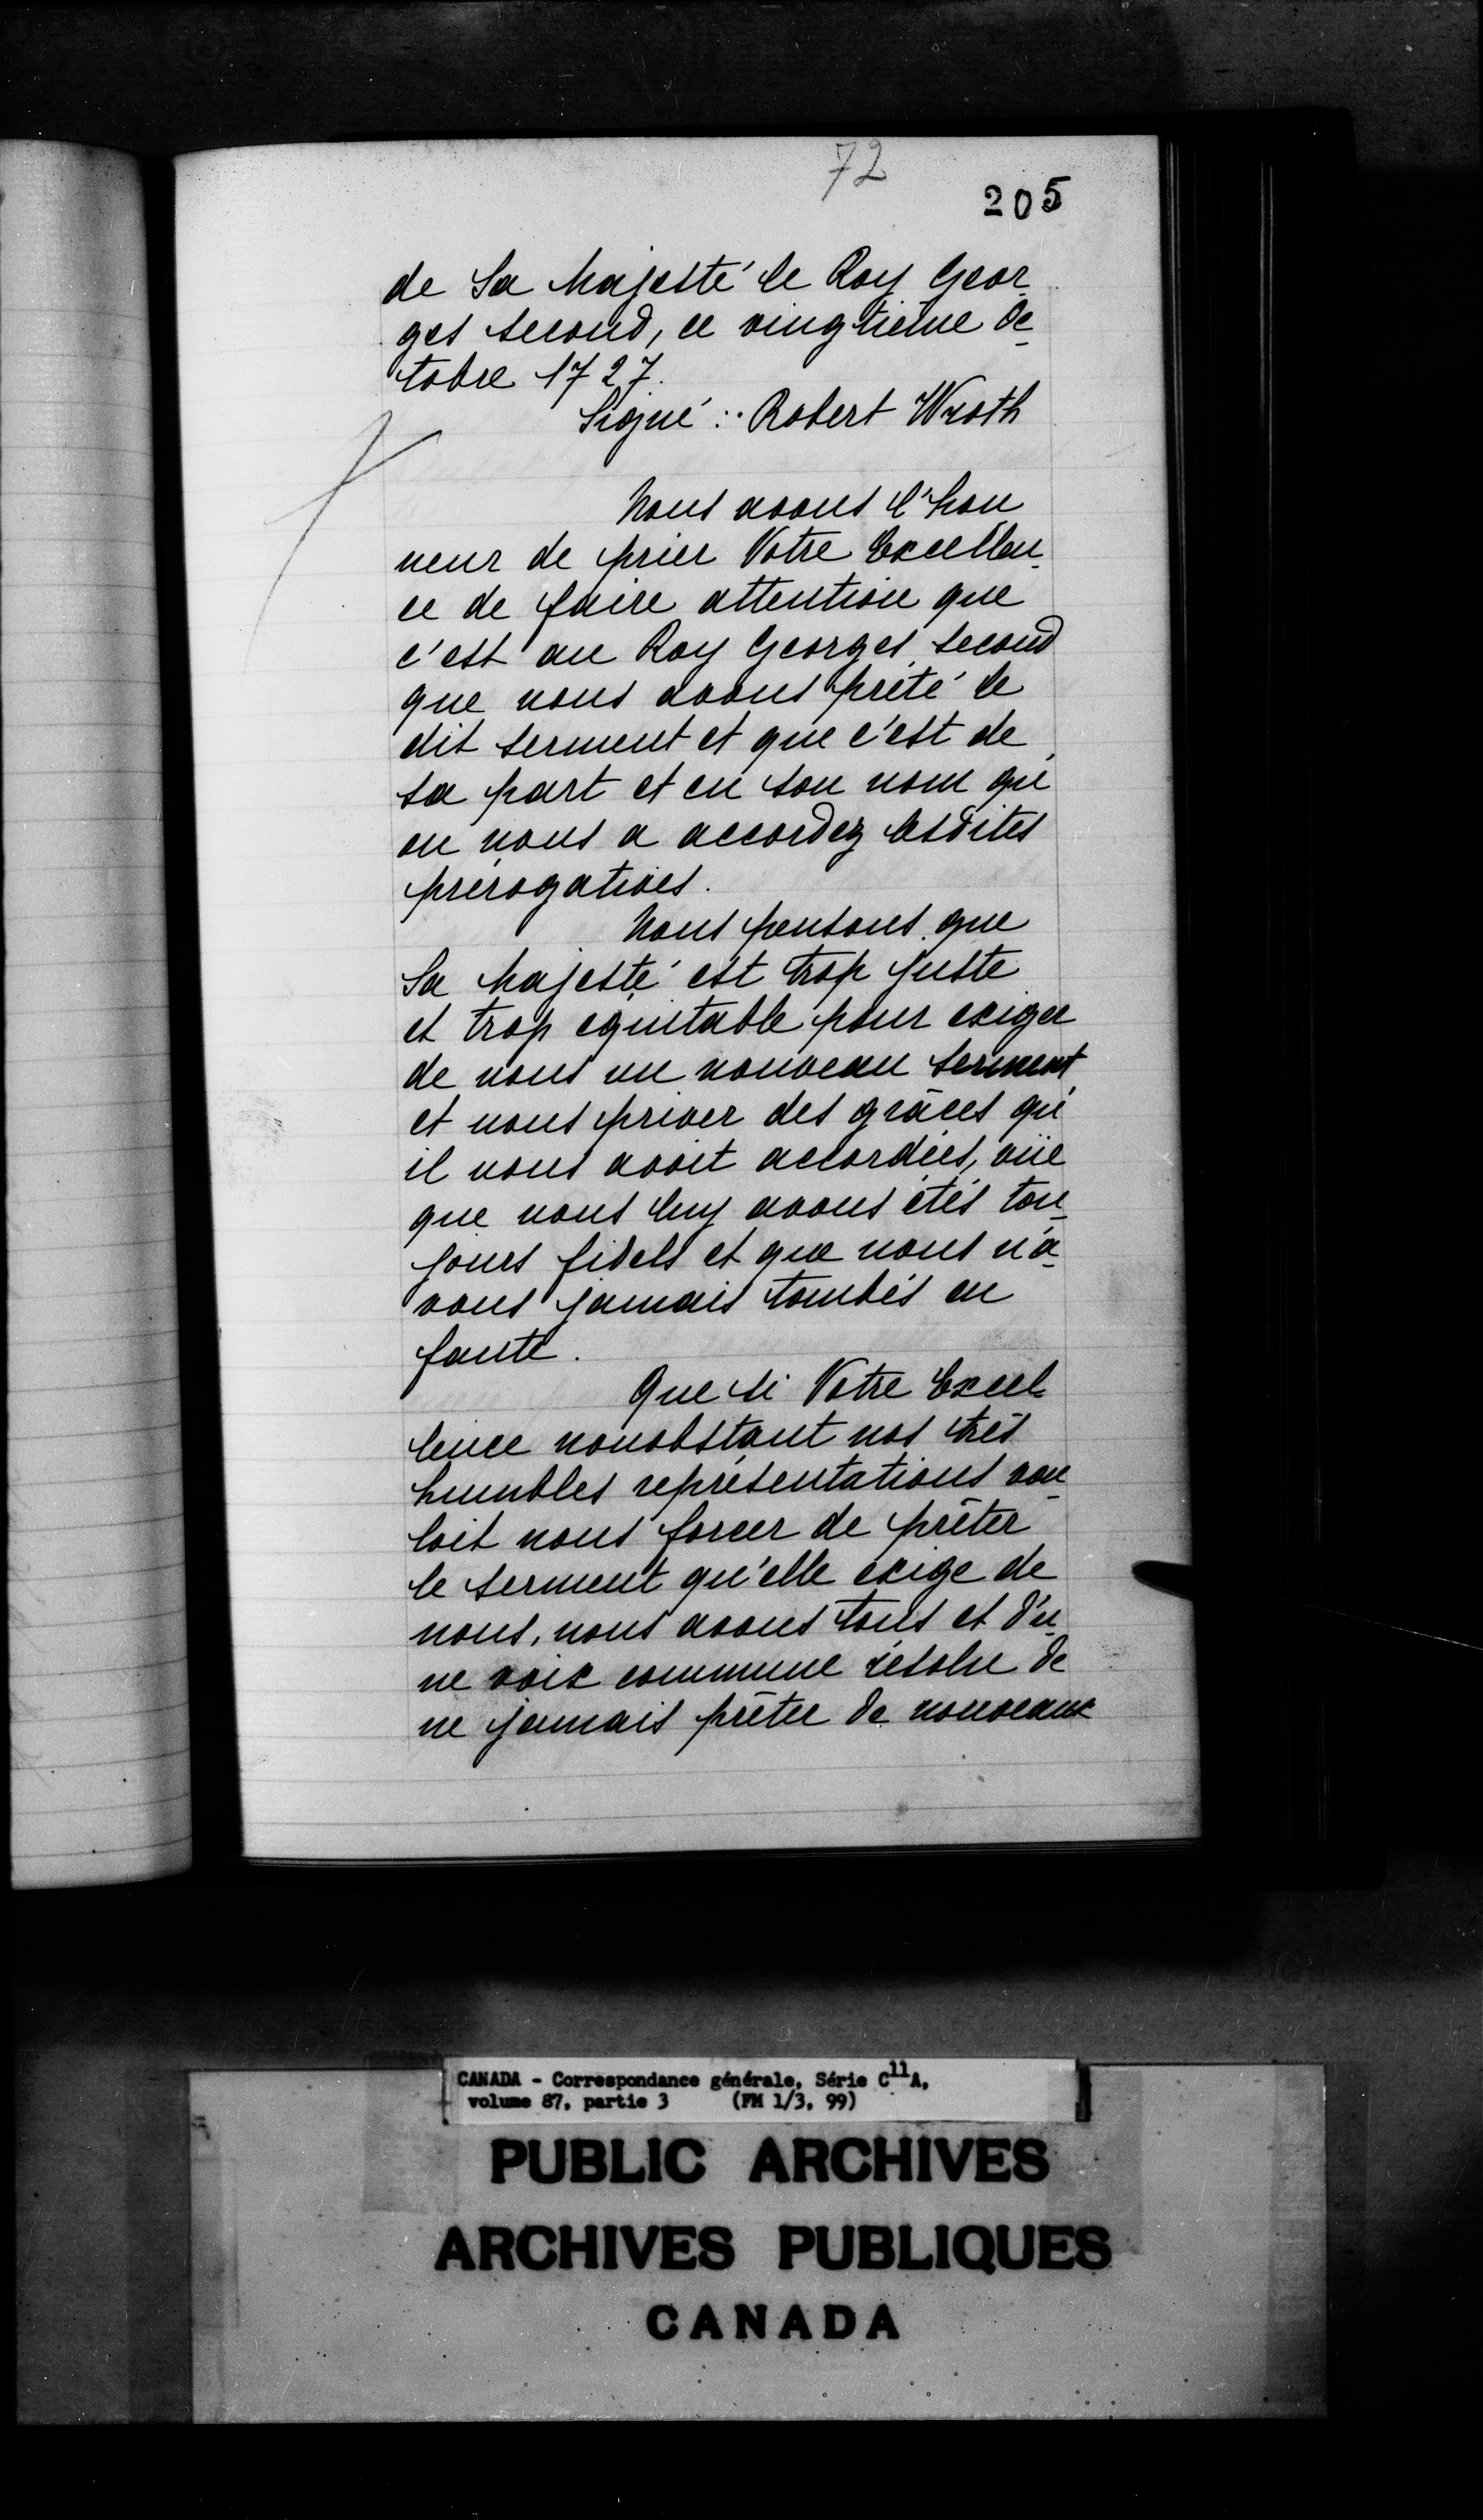 72
205
de Sa Majesté le Roy Geor-
ges second, ce vingtième Oc-
tobre 1727.
Signé : Robert Wroth
Nous avons l'hon
neur de prier Votre Excellen-
ce de faire attention que
c'est au Roy Georges second
que nous avons prêté le
dit serment et que c'est de
sa part et en son nom qu'
on nous a accordez lesdites
prérogatives.
Nous pensons que
Sa Majesté est trop juste
et trop equitable pour exiger
de nous un nouveau serment
et nous priver des grâces qu'
il nous avoit accordées, vüe
que nous luy avons étés tou-
jours fidels et que nous n'a-
vons jamais tombés en
faute.
Que si Votre Excel-
lence nonobstant nos très
humbles représentations vou-
loit nous forcer de prêter
le serment qu'elle exige de
nous, nous avons tous et d'u-
ne voix commune résolu de
ne jamais prêter de nouveaux
CANADA - Correspondance générale, Série C11A,
volume 87, partie 3 (FM 1/3, 99)
PUBLIC ARCHIVES
ARCHIVES PUBLIQUES
CANADA